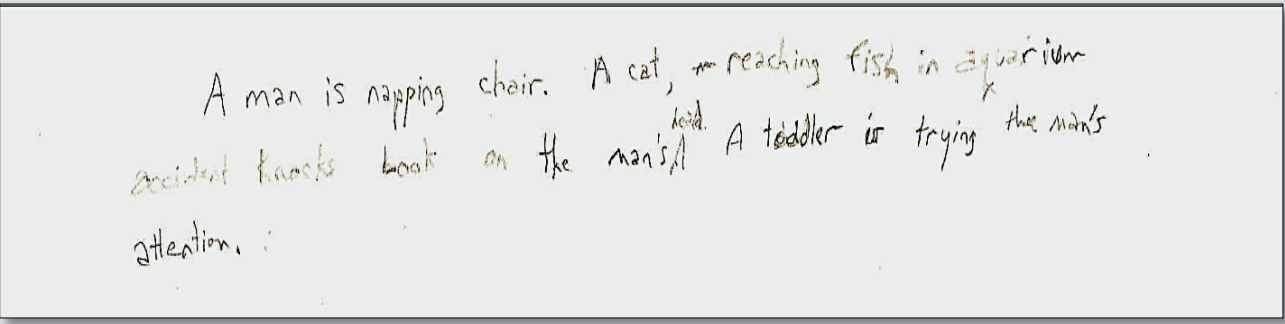 A man is napping chair. A cat, reaching fish in aquarium
accident knocks book on the man's head. A toddler is trying the man's
attention.